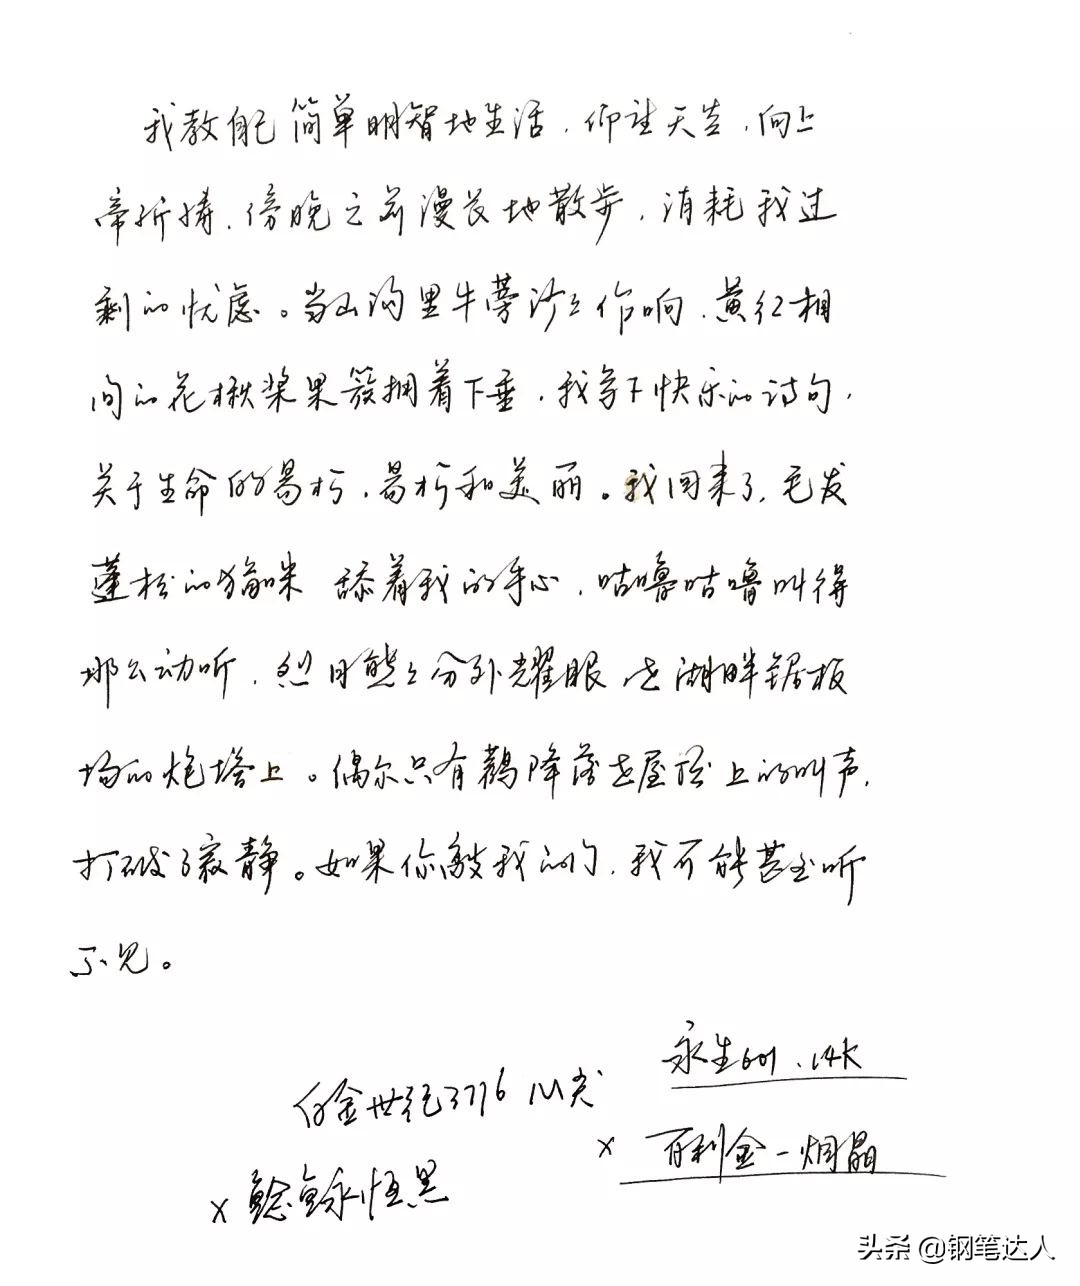 我教自己简单明智地生活,仰望天空,向上
帝祈祷,傍晚之前漫长地散步,消耗我过
剩的忧虑。当山沟里牛蒡沙沙作响,黄红相
间的花楸浆果簇拥着下垂,我写下快乐的诗句,
关于生命的易朽,易朽和美丽。我回来了,毛发
蓬松的猫咪 舔着我的手心,咕噜咕噜叫得
那么动听,烈日熊熊分外耀眼 在湖畔锯板
场的炮塔上。偶尔只有鹳降落在屋顶上的叫声,
打破了寂静。如果你敲我的门,我可能甚至听
不见。
永生601.14K
白金世纪3776 M尖
× 百利金-烟晶
× 鲶鱼永恒黑
头条 @钢笔达人